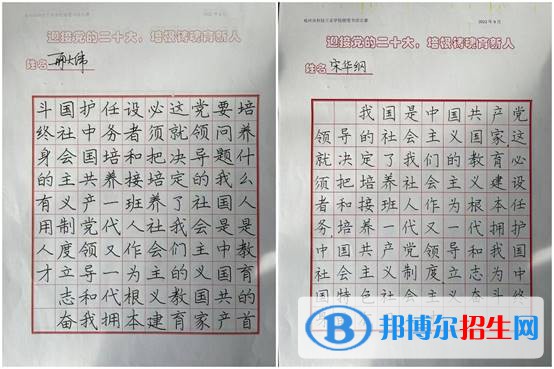 2022年9月
迎接党的二十大，培根铸魂育新人
姓名 邢大伟
培养什么人是教育的首
要问题我国是中国共产
党领导的社会主义国家
这就决定了我们的教育
必须把培养社会主义建
设者和接班人作为根本
任务培养一代又一代拥
护中国共产党领导和我
国社会主义制度立志奋
斗终身的有用人才
2022年9月
迎接党的二十大，培根铸魂育新人
姓名 宋华纲
我国是中国共产党
领导的社会主义国家这
就决定了我们的教育必
须把培养社会主义建设
者和接班人作为根本任
务培养一代又一代拥护
中国共产党领导和我国
社会主义制度立志为中
国特色社会主义奋斗终
邦博尔招生网